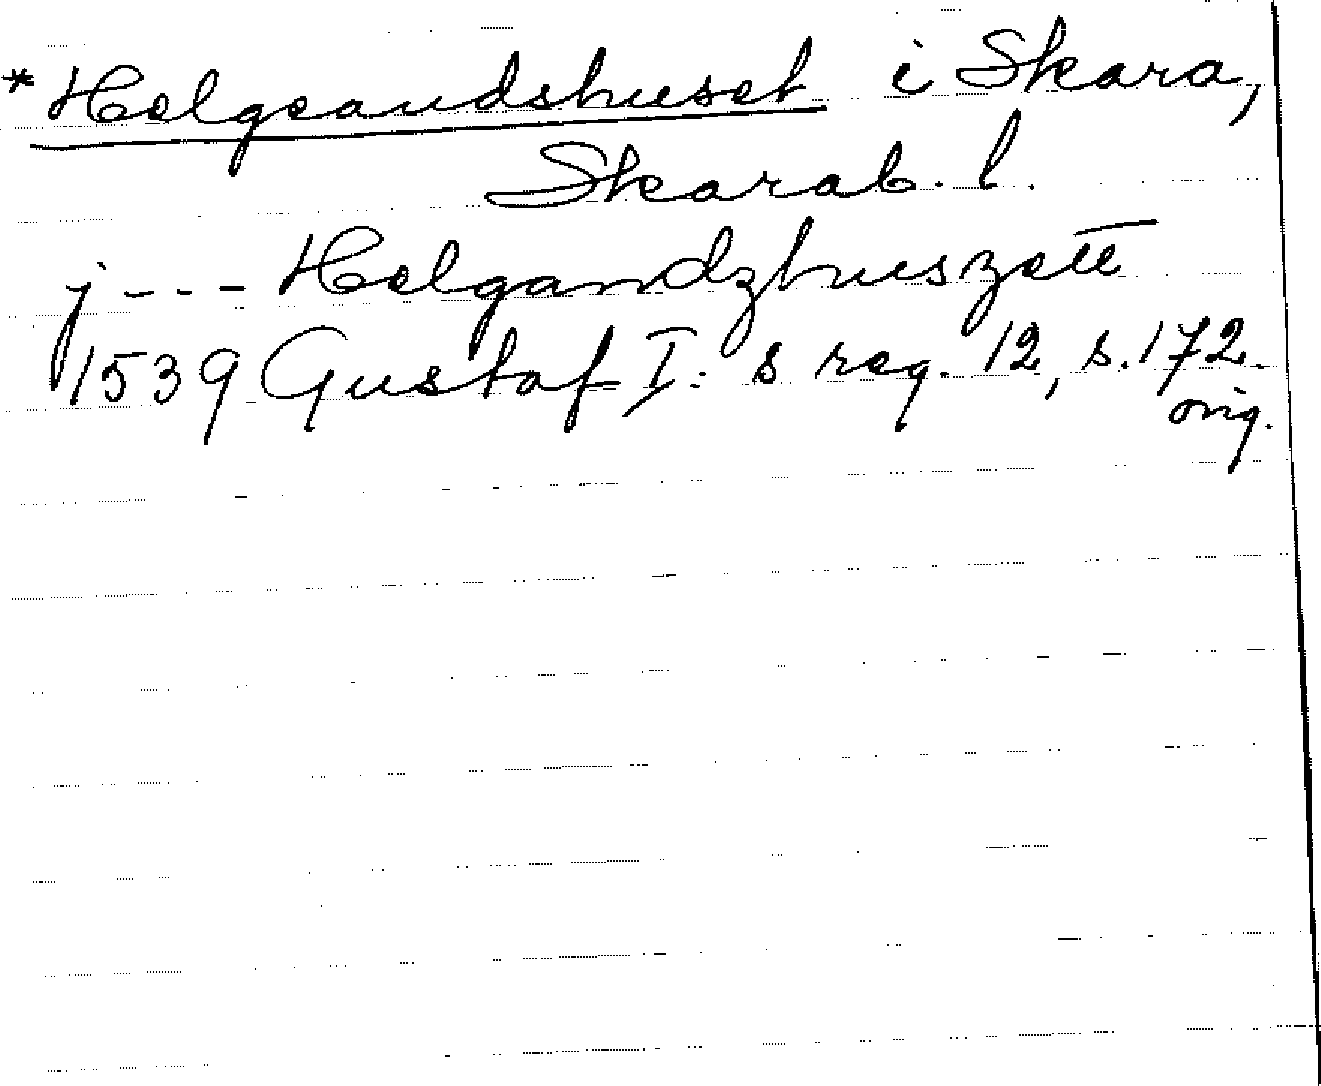 *Helgeandshuset i Skara,
Skarab. l.
j --- Helgandzhuszett
1539 Gustaf I:s reg. 12, s. 172.
orig.